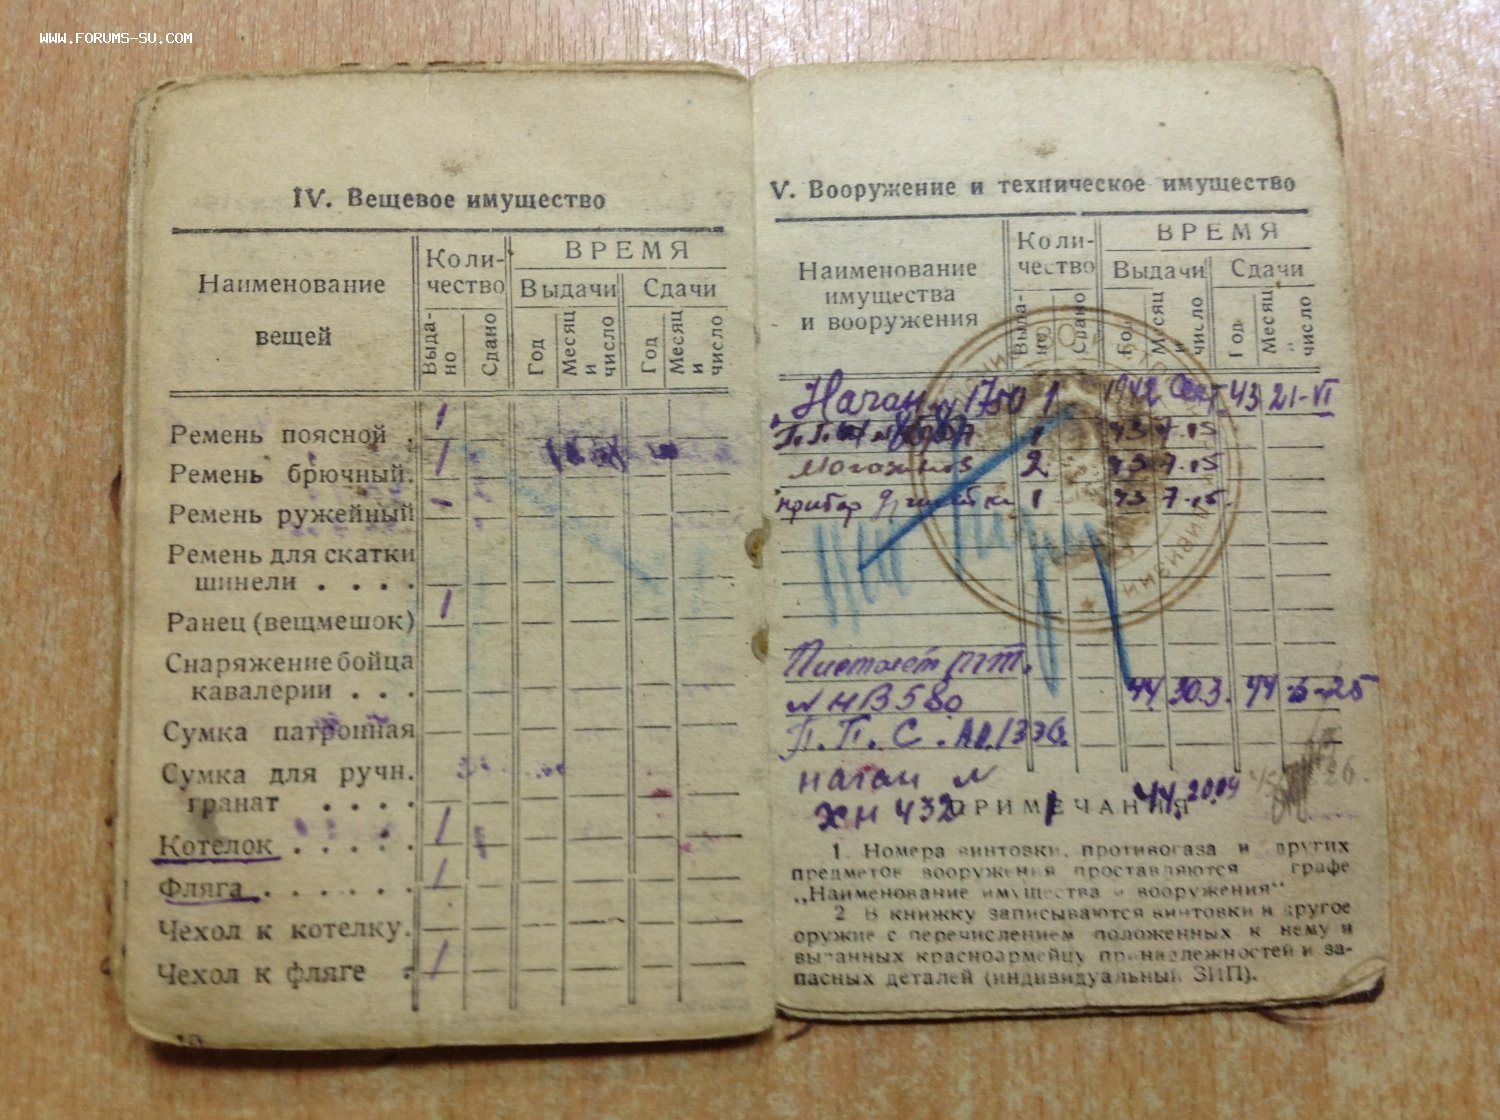 WWW.FORUMS-SU.COM
IV. Вещевое имущество
Наименование вещей
Коли-
чество
ВРЕМЯ
Выдачи
Сдачи
Выда-
но
Сдано
Год
Месяц и число
Год
Месяц и число
Ремень поясной . 1
Ремень брючный. 1
Ремень ружейный -
Ремень для скатки
шинели . . . .
Ранец (вещмешок) 1
Снаряжение бойца
кавалерии . . .
Сумка патронная
Сумка для ручн.
гранат . . . .
Котелок . . . . . 1
Фляга . . . . . . 1
Чехол к котелку.
Чехол к фляге . 1
V. Вооружение и техническое имущество
Наименование
имущества
и вооружения
Коли-
чество
ВРЕМЯ
Выдачи
Сдачи
Выда-
но
Сдано
Год
Месяц и число
Год
Месяц и число
Наган № 1750 1 1942 Сент. 43 21-VI
1 43 7-15
2 43 7-15
прибор 1 43 7-15
Пистолет
№ НВ580 44 30.3. 44
П.П.С.
наган №
ХН 432 1 44.
ПРИМЕЧАНИЯ
1. Номера винтовки, противогаза и других
предметов вооружения проставляются графе
„Наименование имущества и вооружения“
2 В книжку записываются винтовки и другое
оружие с перечислением положенных к нему и
выданных красноармейцу принадлежностей и за-
пасных деталей (индивидуальный ЗИП).